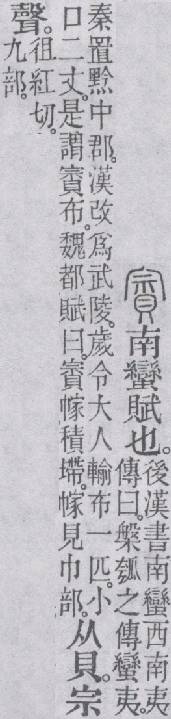 賨南蠻賦也。
後漢書南蠻西南夷
傳曰。槃瓠之傳蠻夷。
秦置黔中郡。漢改爲武陵。歲令大人輸布一匹。小
口二丈。是謂賨布。魏都賦曰。賨幏積墆。幏見巾部。
从貝。宗
聲。
徂紅切。
九部。